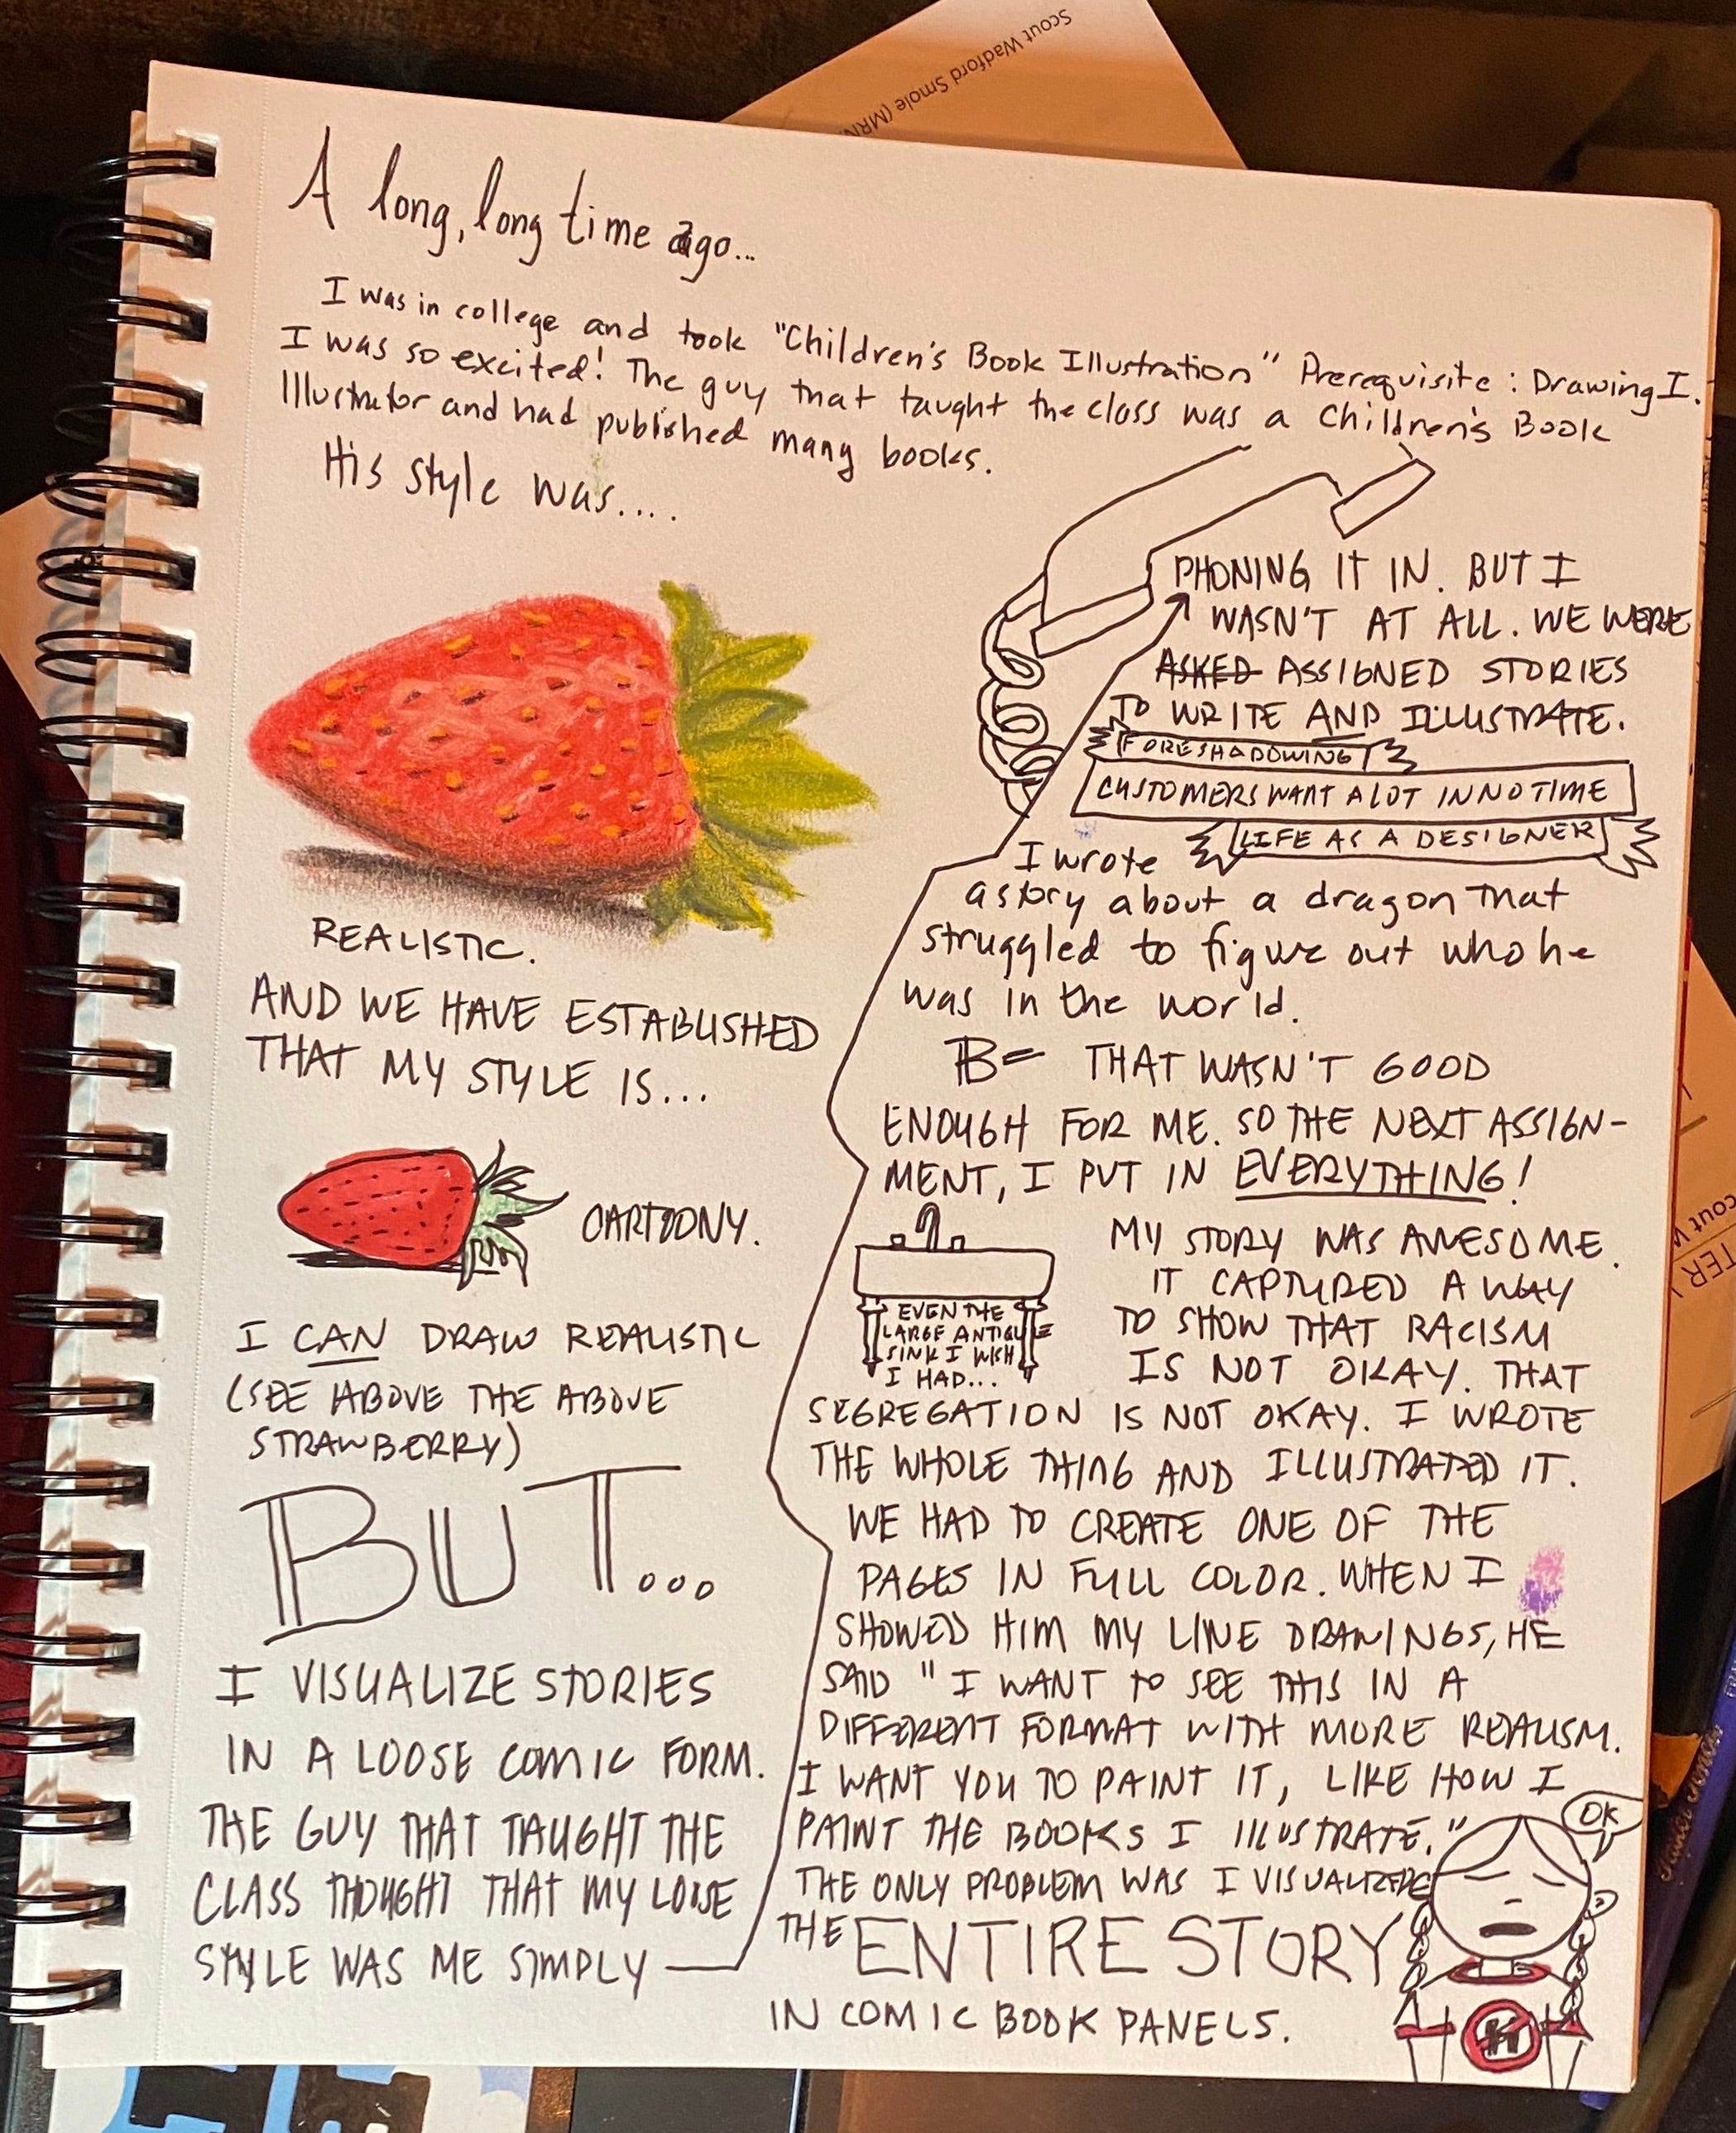 Scout Wadford Smole (MRN
A long, long time ago...
I was in college and took "Children's Book Illustration" Prerequisite: Drawing I.
I was so excited! The guy that taught the class was a Children's Book
Illustrator and had published many books.
His style was....
REALISTIC.
AND WE HAVE ESTABLISHED
THAT MY STYLE IS...
CARTOONY.
I CAN DRAW REALISTIC
(SEE ABOVE THE ABOVE
STRAWBERRY)
BUT...
I VISUALIZE STORIES
IN A LOOSE COMIC FORM.
THE GUY THAT TAUGHT THE
CLASS THOUGHT THAT MY LOOSE
STYLE WAS ME SIMPLY
PHONING IT IN. BUT I
WASN'T AT ALL. WE WERE
ASKED ASSIGNED STORIES
TO WRITE AND ILLUSTRATE.
FORESHADOWING
CUSTOMERS WANT A LOT IN NO TIME
LIFE AS A DESIGNER
I wrote
a story about a dragon that
struggled to figure out who he
was in the world.
B= THAT WASN'T GOOD
ENOUGH FOR ME. SO THE NEXT ASSIGN-
MENT, I PUT IN EVERYTHING!
EVEN THE
LARGE ANTIQUE
SINK I WISH
I HAD...
MY STORY WAS AWESOME.
IT CAPTURED A WAY
TO SHOW THAT RACISM
IS NOT OKAY. THAT
SEGREGATION IS NOT OKAY. I WROTE
THE WHOLE THING AND ILLUSTRATED IT.
WE HAD TO CREATE ONE OF THE
PAGES IN FULL COLOR. WHEN I
SHOWED HIM MY LINE DRAWINGS, HE
SAID "I WANT TO SEE THIS IN A
DIFFERENT FORMAT WITH MORE REALISM.
I WANT YOU TO PAINT IT, LIKE HOW I
PAINT THE BOOKS I ILLUSTRATE."
OK
THE ONLY PROBLEM WAS I VISUALIZED
THE ENTIRE STORY
IN COMIC BOOK PANELS.